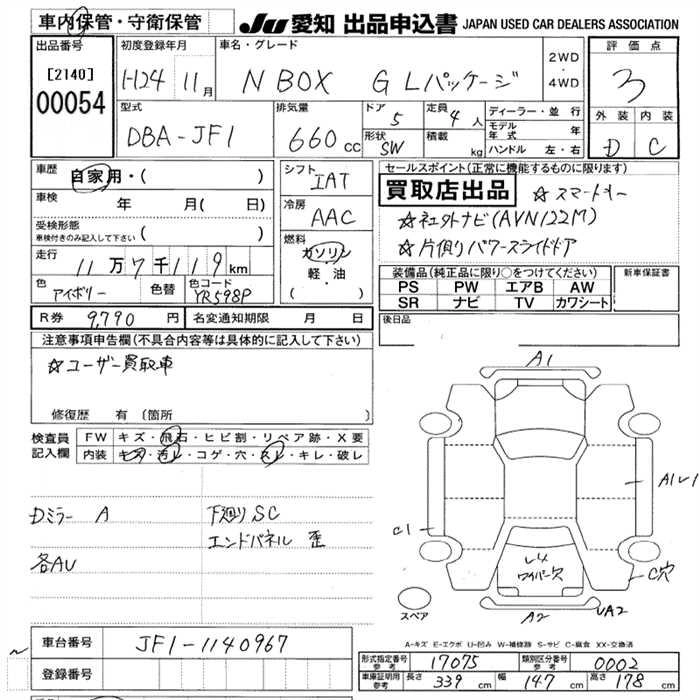 車内保管・守衛保管
JU 愛知 出品申込書 JAPAN USED CAR DEALERS ASSOCIATION
出品番号
[2140]
00054
初度登録年月
H24 11月
車名・グレード
N BOX G Lパッケージ
2WD
・
4WD
評価点
3
外装 内装
D C
型式
DBA-JF1
排気量
660 cc
ドア 5
定員 4人
形状 SW
積載 kg
ディーラー・並行
モデル年式 年
ハンドル 左・右
車歴
自家用・( )
車検 年 月( 日)
受検形態
車検付きのみ記入して下さい ( )
走行
11万7千119km
色 アイボリー
色替
色コード YR598P
シフト
IAT
冷房
AAC
燃料
ガソリン
軽・油
( )
セールスポイント(正常に機能するものに限ります)
買取店出品
☆スマートキー
☆社外ナビ(AVN122M)
☆片側パワースライドドア
装備品(純正品に限り○をつけてください)
PS PW エアB AW
SR ナビ TV カワシート
新車保証書
R券 9,790 円
名変通知期限 月 日
後日品
注意事項申告欄(不具合内容等は具体的に記入して下さい)
☆ユーザー買取車
修復歴 有 〔箇所 〕
検査員
記入欄
FW キズ・飛石・ヒビ割・リペア跡・X要
内装 キズ・汚レ・コゲ・穴・スレ・キレ・破レ
Dミラー A
下廻りSC
エンドパネル 歪
各AU
A1
A1 U1
C1
U4
ワイパー欠
C穴
A2
UA2
スペア
A-キズ E-エクボ U-凹み W-補修跡 S-サビ C-腐食 XX-交換済
車台番号 JF1-1140967
登録番号
形式指定番号 参考 17075
類別区分番号 参考 0002
車庫証明用 参考 長さ 339 cm 幅 147 cm 高さ 178 cm